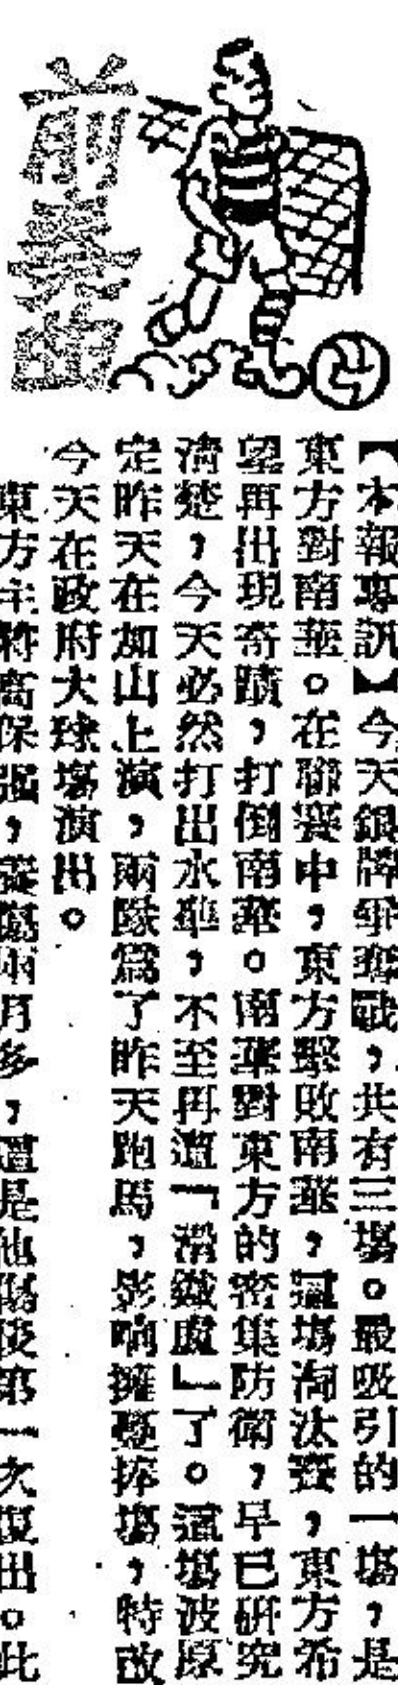 前奏曲
【本報專訊】今天銀牌爭奪戰，共有三塲。最吸引的一塲，是
東方對南華。在聯賽中，東方擊敗南華，這塲淘汰賽，東方希
望再出現奇蹟，打倒南華。南華對東方的密集防衛，早已研究
清楚，今天必然打出水準，不至再遭「滑鐵盧」了。這塲波原
定昨天在加山上演，兩隊爲了昨天跑馬，影响擁躉捧塲，特改
今天在政府大球塲演出。
東方主將高保強，養傷兩月多，這是他傷後第一次復出。此